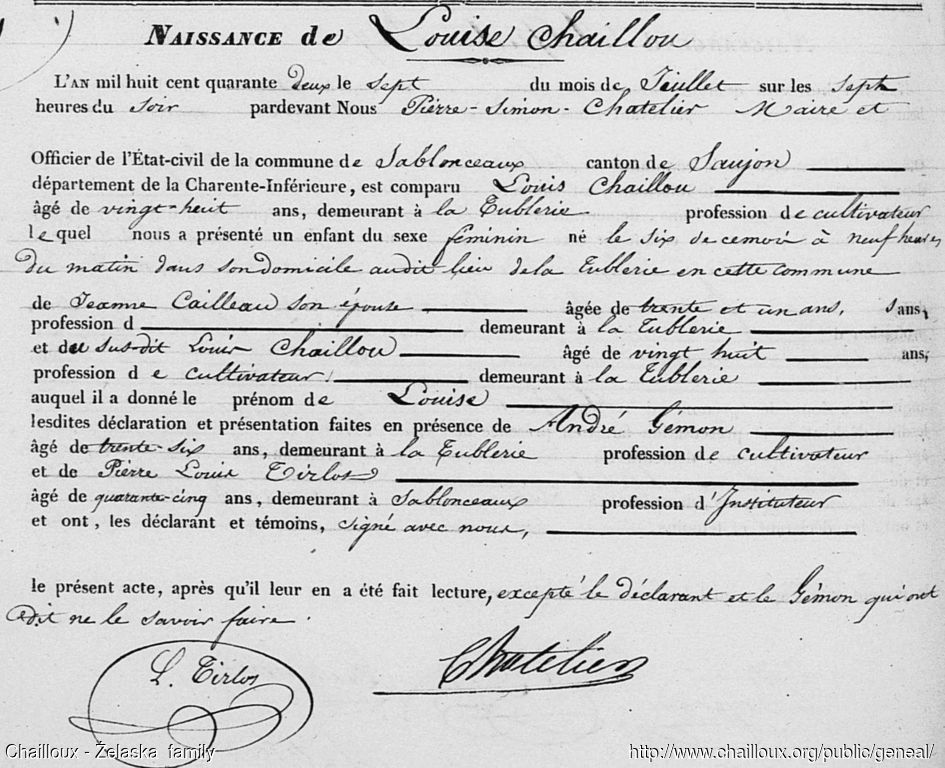 Naissance de Louise Chaillou
L'an mil huit cent quarante deux le sept du mois de Juillet sur les sept
heures du soir pardevant Nous Pierre-Simon-Chatelier Maire et
Officier de l'État-civil de la commune de Sablonceaux canton de Saujon
département de la Charente-Inférieure, est comparu Louis Chaillou
âgé de vingt-huit ans, demeurant à la Tublerie profession de cultivateur
lequel nous a présenté un enfant du sexe féminin né le six de ce mois à neuf heures
du matin dans son domicile audit lieu de la Tublerie en cette commune
de Jeanne Cailleau son épouse âgée de trente et un ans, sans
profession d demeurant à la Tublerie
et du sus-dit Louis Chaillou âgé de vingt huit ans,
profession de cultivateur, demeurant à la Tublerie
auquel il a donné le prénom de Louise
lesdites déclaration et présentation faites en présence de André Gémon
âgé de trente-six ans, demeurant à la Tublerie profession de cultivateur
et de Pierre Louis Tirlos
âgé de quarante-cinq ans, demeurant à Sablonceaux profession d'Instituteur
et ont, les déclarant et témoins, signé avec nous,
le présent acte, après qu'il leur en a été fait lecture, excepté le déclarant et le Gémon qui ont
dit ne le savoir faire.
L. Tirlos Chatelier
Chailloux - Želaska family http://www.chailloux.org/public/geneal/